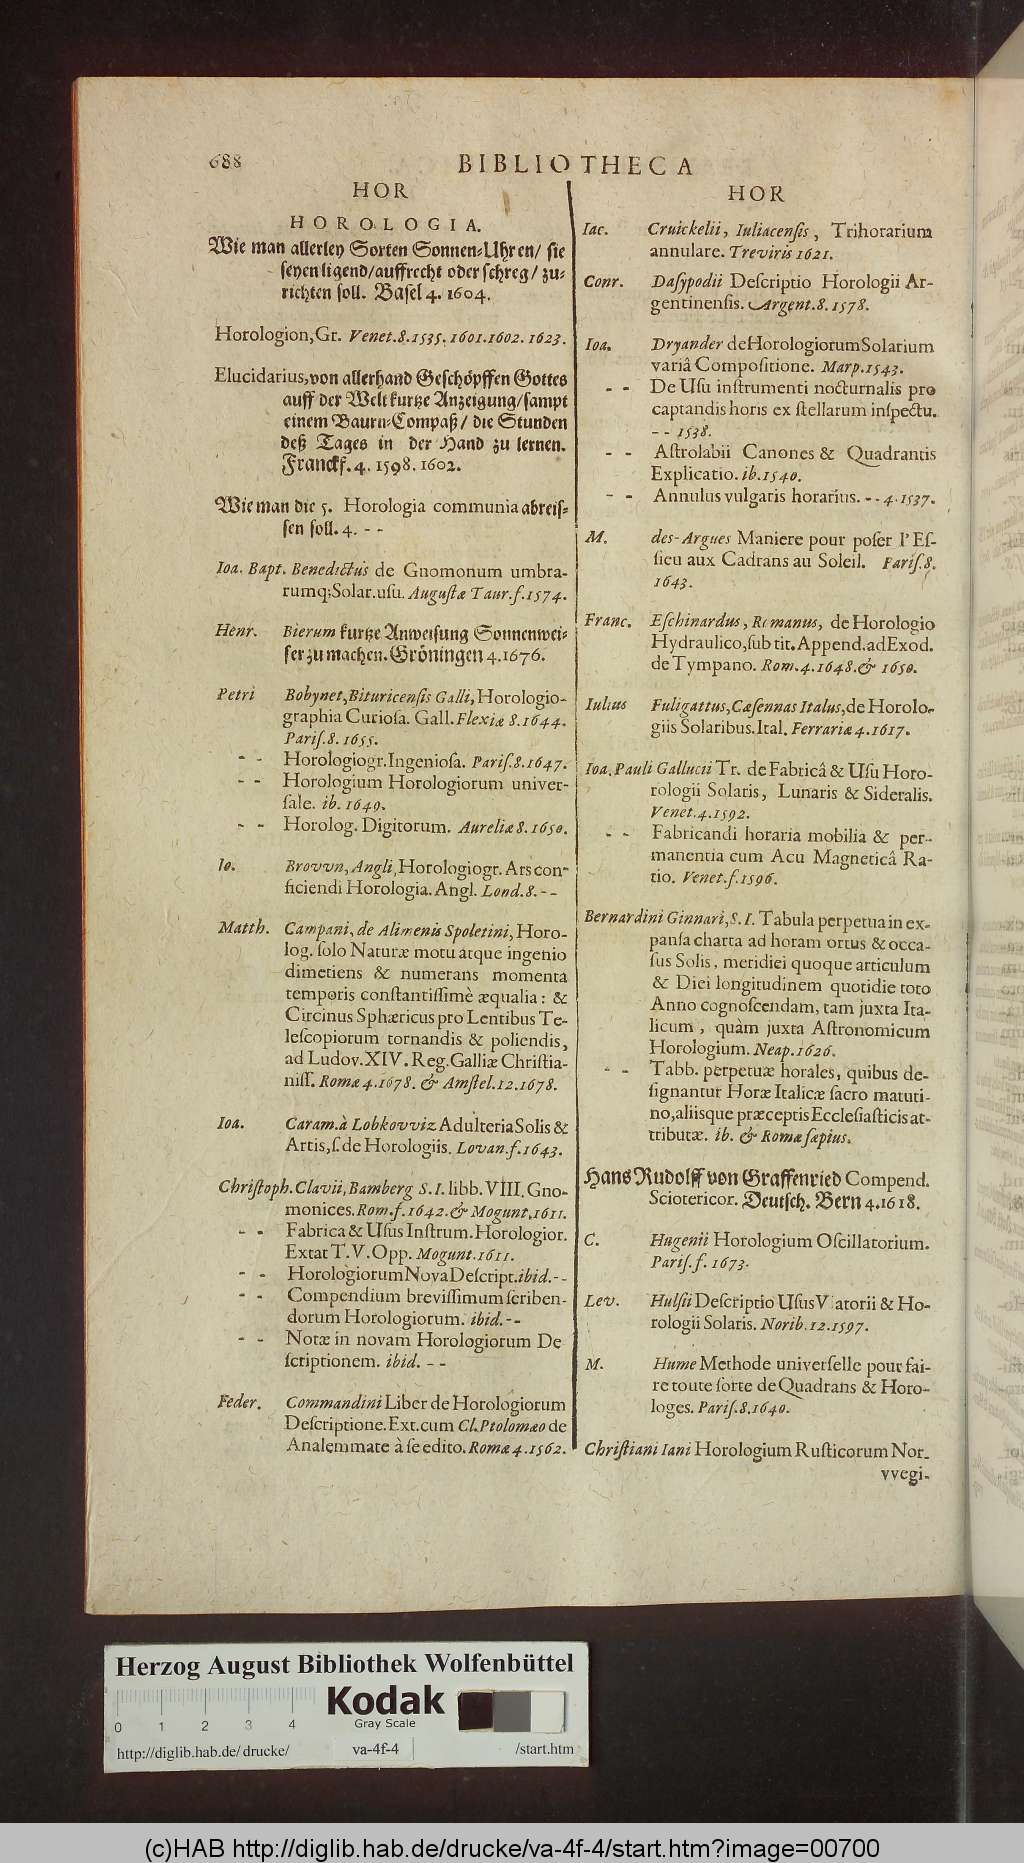 688
BIBLIOTHECA
HOR
HOROLOGIA.
Wie man allerley Sorten Sonnen-Uhren/ sie
seyen ligend/auffrecht oder schreg/ zu-
richten soll. Basel 4. 1604.
Horologion, Gr. Venet. 8. 1535. 1601. 1602. 1623.
Elucidarius, von allerhand Geschöpffen Gottes
auff der Welt kurtze Anzeigung/sampt
einem Baurn-Compaß/ die Stunden
deß Tages in der Hand zu lernen.
Franckf. 4. 1598. 1602.
Wie man die 5. Horologia communia abreis-
sen soll. 4. - -
Ioa. Bapt. Benedictus de Gnomonum umbra-
rumq; Solar. usu. Augustæ Taur. f. 1574.
Henr. Bierum kurtze Anweisung Sonnenwei-
ser zu machen. Gröningen 4. 1676.
Petri Bobynet, Bituricensis Galli, Horologio-
graphia Curiosa. Gall. Flexiæ 8. 1644.
Paris. 8. 1655.
- - Horologiogr. Ingeniosa. Paris. 8. 1647.
- - Horologium Horologiorum univer-
sale. ib. 1649.
- - Horolog. Digitorum. Aureliæ 8. 1650.
Io. Brovvn, Angli, Horologiogr. Ars con-
ficiendi Horologia. Angl. Lond. 8. - -
Matth. Campani, de Alimenis Spoletini, Horo-
log. solo Naturæ motu atque ingenio
dimetiens & numerans momenta
temporis constantissimè æqualia: &
Circinus Sphæricus pro Lentibus Te-
lescopiorum tornandis & poliendis,
ad Ludov. XIV. Reg. Galliæ Christia-
niss. Romæ 4. 1678. & Amstel. 12. 1678.
Ioa. Caram. à Lobkovviz Adulteria Solis &
Artis, s. de Horologiis. Lovan. f. 1643.
Christoph. Clavii, Bamberg S. I. libb. VIII. Gno-
monices. Rom. f. 1642. & Mogunt. 1611.
- - Fabrica & Usus Instrum. Horologior.
Extat T. V. Opp. Mogunt. 1611.
- - Horologiorum Nova Descript. ibid. - -
- - Compendium brevissimum scriben-
dorum Horologiorum. ibid. - -
- - Notæ in novam Horologiorum De
scriptionem. ibid. - -
Feder. Commandini Liber de Horologiorum
Descriptione. Ext. cum Cl. Ptolomæo de
Analemmate à se edito. Romæ 4. 1562.
HOR
Iac. Cruickelii, Iuliacensis, Trihorarium
annulare. Treviris 1621.
Conr. Dasypodii Descriptio Horologii Ar-
gentinensis. Argent. 8. 1578.
Ioa. Dryander de Horologiorum Solarium
variâ Compositione. Marp. 1543.
- - De Usu instrumenti nocturnalis pro
captandis horis ex stellarum inspectu.
- - 1538.
- - Astrolabii Canones & Quadrantis
Explicatio. ib. 1540.
- - Annulus vulgaris horarius. - - 4. 1537.
M. des-Argues Maniere pour poser l'Es-
sieu aux Cadrans au Soleil. Paris. 8.
1643.
Franc. Eschinardus, Romanus, de Horologio
Hydraulico, sub tit. Append. ad Exod.
de Tympano. Rom. 4. 1648. & 1650.
Iulius Fuligattus, Cæsennas Italus, de Horolo-
giis Solaribus. Ital. Ferrariæ 4. 1617.
Ioa. Pauli Gallucii Tr. de Fabricâ & Usu Horo-
rologii Solaris, Lunaris & Sideralis.
Venet. 4. 1592.
- - Fabricandi horaria mobilia & per-
manentia cum Acu Magneticâ Ra-
tio. Venet. f. 1596.
Bernardini Ginnari, S. I. Tabula perpetua in ex-
pansa charta ad horam ortus & occa-
sus Solis, meridiei quoque articulum
& Diei longitudinem quotidie toto
Anno cognoscendam, tam juxta Ita-
licum, quàm juxta Astronomicum
Horologium. Neap. 1626.
- - Tabb. perpetuæ horales, quibus de-
signantur Horæ Italicæ sacro matuti-
no, aliisque præceptis Ecclesiasticis at-
tributæ. ib. & Romæ sæpius.
Hans Rudolff von Graffenried Compend.
Sciotericor. Deutsch. Bern 4. 1618.
C. Hugenii Horologium Oscillatorium.
Paris. f. 1673.
Lev. Hulsii Descriptio Usus Viatorii & Ho-
rologii Solaris. Norib. 12. 1597.
M. Hume Methode universelle pour fai-
re toute sorte de Quadrans & Horo-
loges. Paris. 8. 1640.
Christiani Iani Horologium Rusticorum Nor-
vvegi-
Herzog August Bibliothek Wolfenbüttel
Kodak
Gray Scale
0 1 2 3 4
http://diglib.hab.de/drucke/ va-4f-4 /start.htm
(c)HAB http://diglib.hab.de/drucke/va-4f-4/start.htm?image=00700